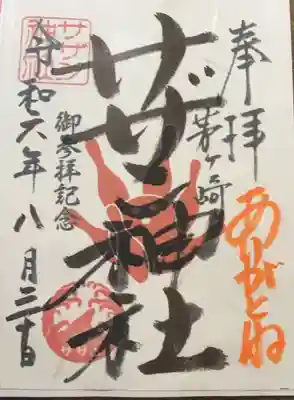 奉拝
ありがとね
茅ヶ崎
サザン神社
御参拝記念
令和六年八月三十日
サザン神社